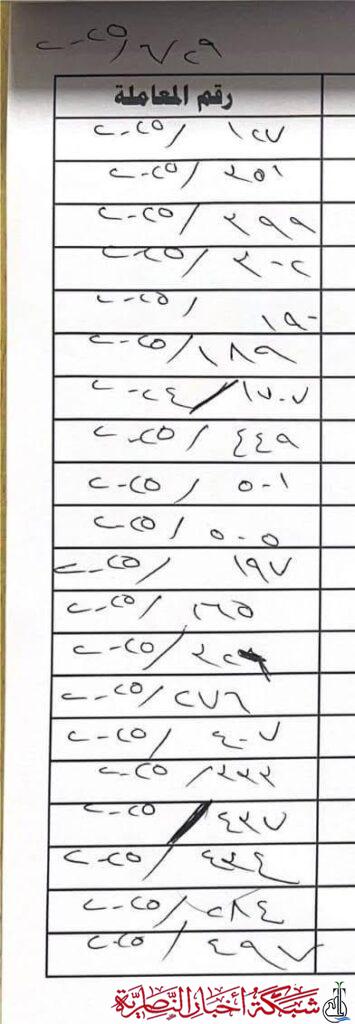 ٢٩/٦/٢٠٢٥
رقم المعاملة
١٢٧/٢٠٢٥
٣٥١/٢٠٢٥
٣٩٩/٢٠٢٥
٣٠٢/٢٠٢٥
١٩٠/٢٠٢٥
١٨٩/٢٠٢٥
١٢٠٧/٢٠٢٤
٤٤٩/٢٠٢٥
٥٠١/٢٠٢٥
٥٠٥/٢٠٢٥
١٩٧/٢٠٢٥
١٦٥/٢٠٢٥
/٢٠٢٥
٢٧٦/٢٠٢٥
٤٠٧/٢٠٢٥
٣٣٣/٢٠٢٥
٤٣٧/٢٠٢٥
٤٣٤/٢٠٢٥
٢٨٤/٢٠٢٥
٤٩٧/٢٠٢٥
شبكة أخبار الناصرية